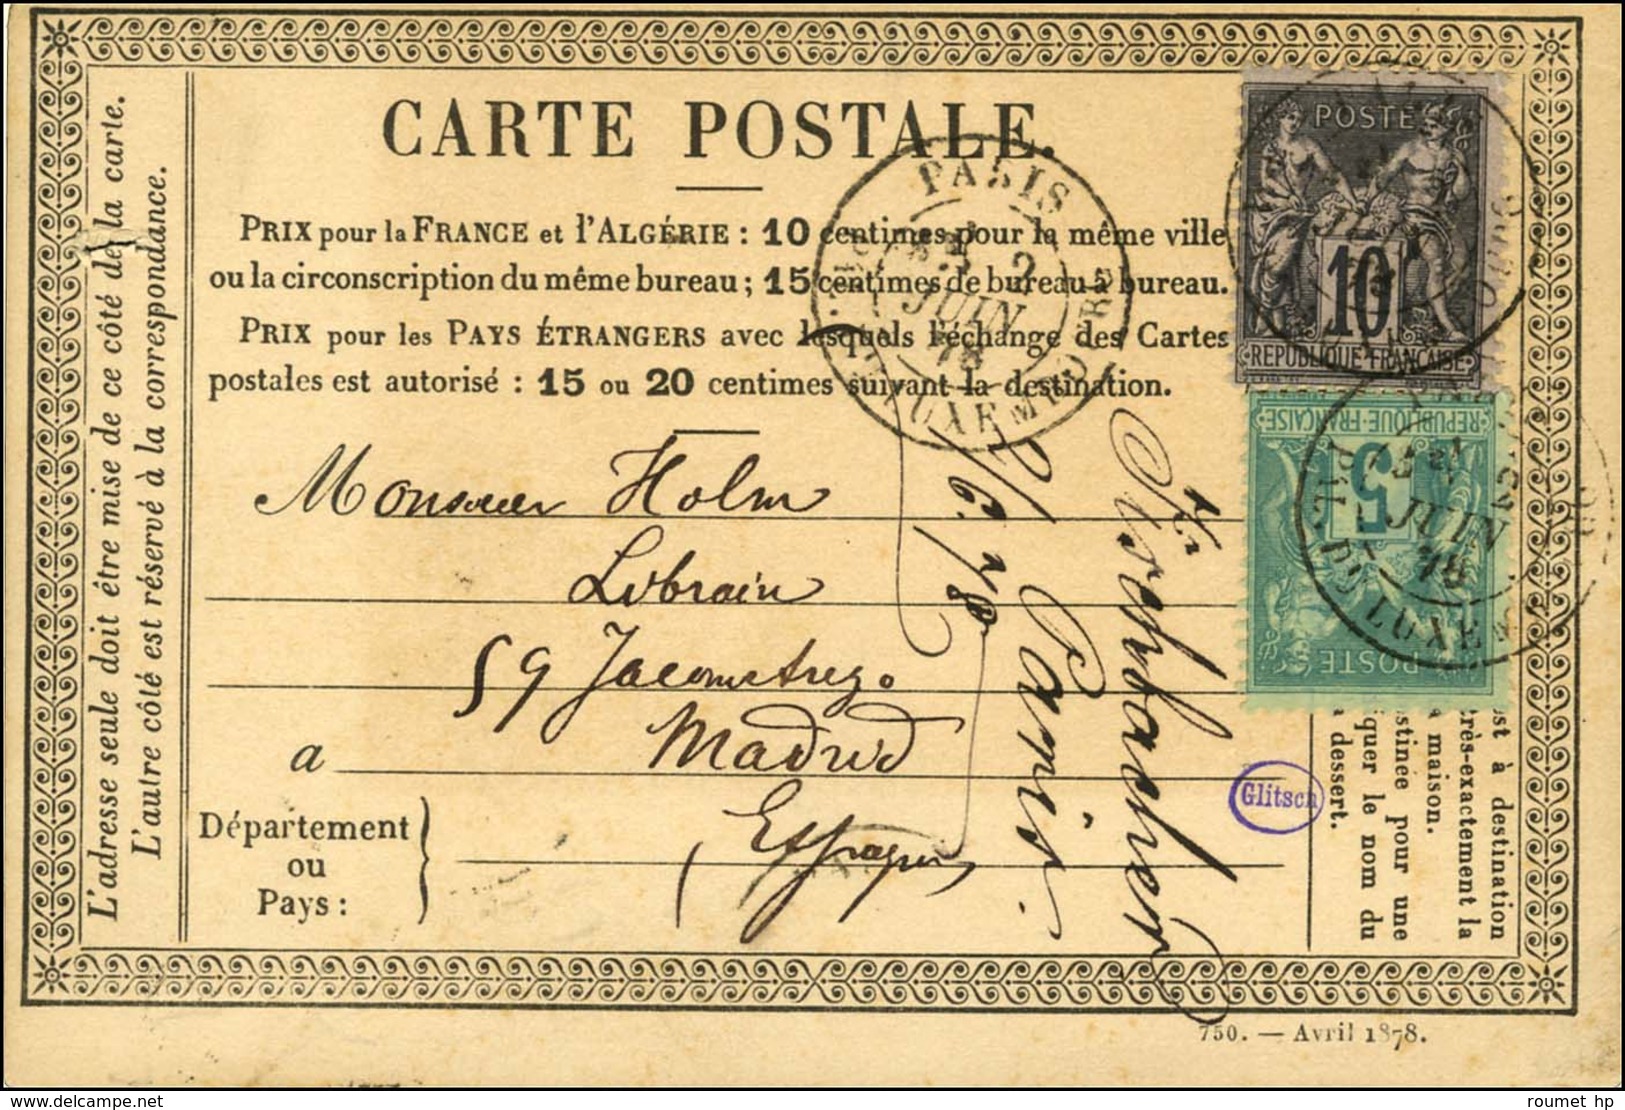 CARTE POSTALE.
PRIX pour la FRANCE et l'ALGÉRIE : 10 centimes pour la même ville
ou la circonscription du même bureau ; 15 centimes de bureau à bureau.
PRIX pour les PAYS ÉTRANGERS avec lesquels l'échange des Cartes
postales est autorisé : 15 ou 20 centimes suivant la destination.
L'adresse seule doit être mise de ce côté de la carte.
L'autre côté est réservé à la correspondance.
Monsieur Holm
Librair
59 Jacometrezo
a Madrid
Département
ou
Pays :
Espagne
Paris
2/6.78
PARIS
2
JUIN
78
PL. DU LUXEMBOURG
POSTE
10
RÉPUBLIQUE FRANÇAISE
RÉPUBLIQUE FRANÇAISE
5
POSTE
2
JUIN
78
PL. DU LUXEM
Glitsch
est à destination
très-exactement la
maison.
stinée pour une
quer le nom du
dessert.
750. — Avril 1878.
roumet hp